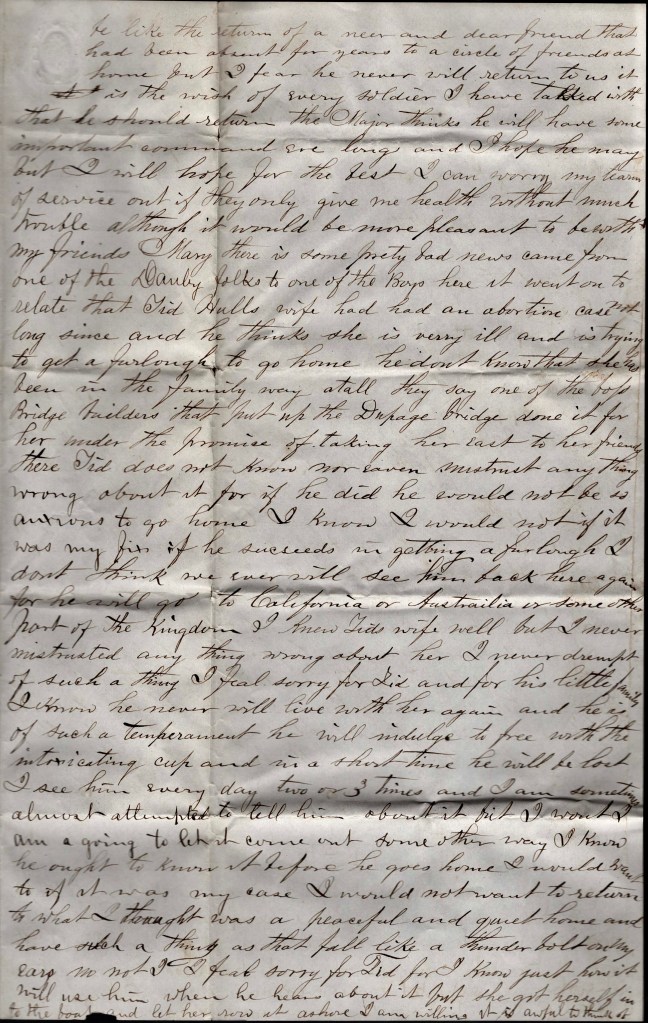 be like the return of a neer and dear friend that
had been absent for years to a circle of friends at
home but I fear he never will return to us it
is the wish of every soldier I have talked with
that he should return the Major thinks he will have some
important command ere long and I hope he may
but I will hope for the best I can worry my
of service out if they only give me health without much
trouble although it would be more pleasant to be with
my friends Mary there is some prety bad news came from
one of the Danby folks to one of the Boys here it went on to
relate that Tid Hulls wife had had an abortion case not
long since and he thinks she is verry ill and is trying
to get a furlough to go home he dont Know that she has
been in the family way atall they say one of the boss
Bridge builders that put up the Dupage Bridge done it for
her under the promise of taking her East to her friends
there Tid does not Know nor eaven mistrust any thing
wrong about it for if he did he would not be so
anxious to go home I Know I would not if it
was my if he succeeds in getting a furlough I
dont think we ever will see him back here again
for he will go to California or Austrailia or some other
part of the Kingdom I Know Tids wife well but I never
mistrusted any thing wrong about her I never drempt
of such a thing I feal sorry for Tid and for his little family
I Know he never will live with her again and he is
of such a temperament he will indulge to free with the
intoxicating cup and in a short time he will be lost
I see him every day two or 3 times and I am sometimes
almost attempted to tell him about it but I wont I
am a going to let it come out some other way I Know
he ought to Know it before he goes home I would want
to if it was my case I would not want to return
to what I thought was a peaceful and quiet home and
have such a thing as that fall like a thunder bolt on my
ears no not I I feal sorry for Tid for I Know just how it
will use him when he hears about it but she got herself in
to the boat and let her row it ashore I am willing it is awful to think of